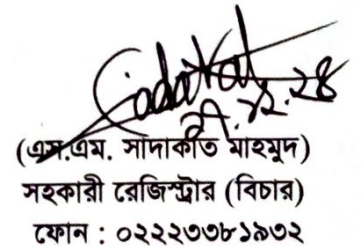 Sadakat
(এস.এম. সাদাকাত মাহমুদ)
সহকারী রেজিস্ট্রার (বিচার)
ফোন : ০২২২৩৩৮১৯৩২